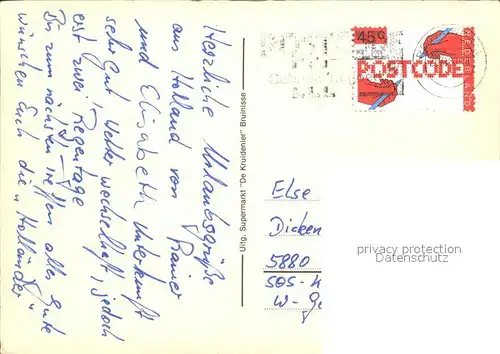 Herzliche Urlaubsgrüße
aus Holland von Rainer
und Elisabeth Unterkunft
sehr gut, Wetter wechselhaft, jedoch
erst zwei Regentage
Bis zum nächsten Treffen alles Gute
wünschen Euch die "Holländer"
Uitg. Supermarkt "De Kruidenier" Bruinisse
45 c
NEDERLAND
POSTCODE
Else
Dicken
5880
SOS-K
W-Ge
privacy protection
Datenschutz